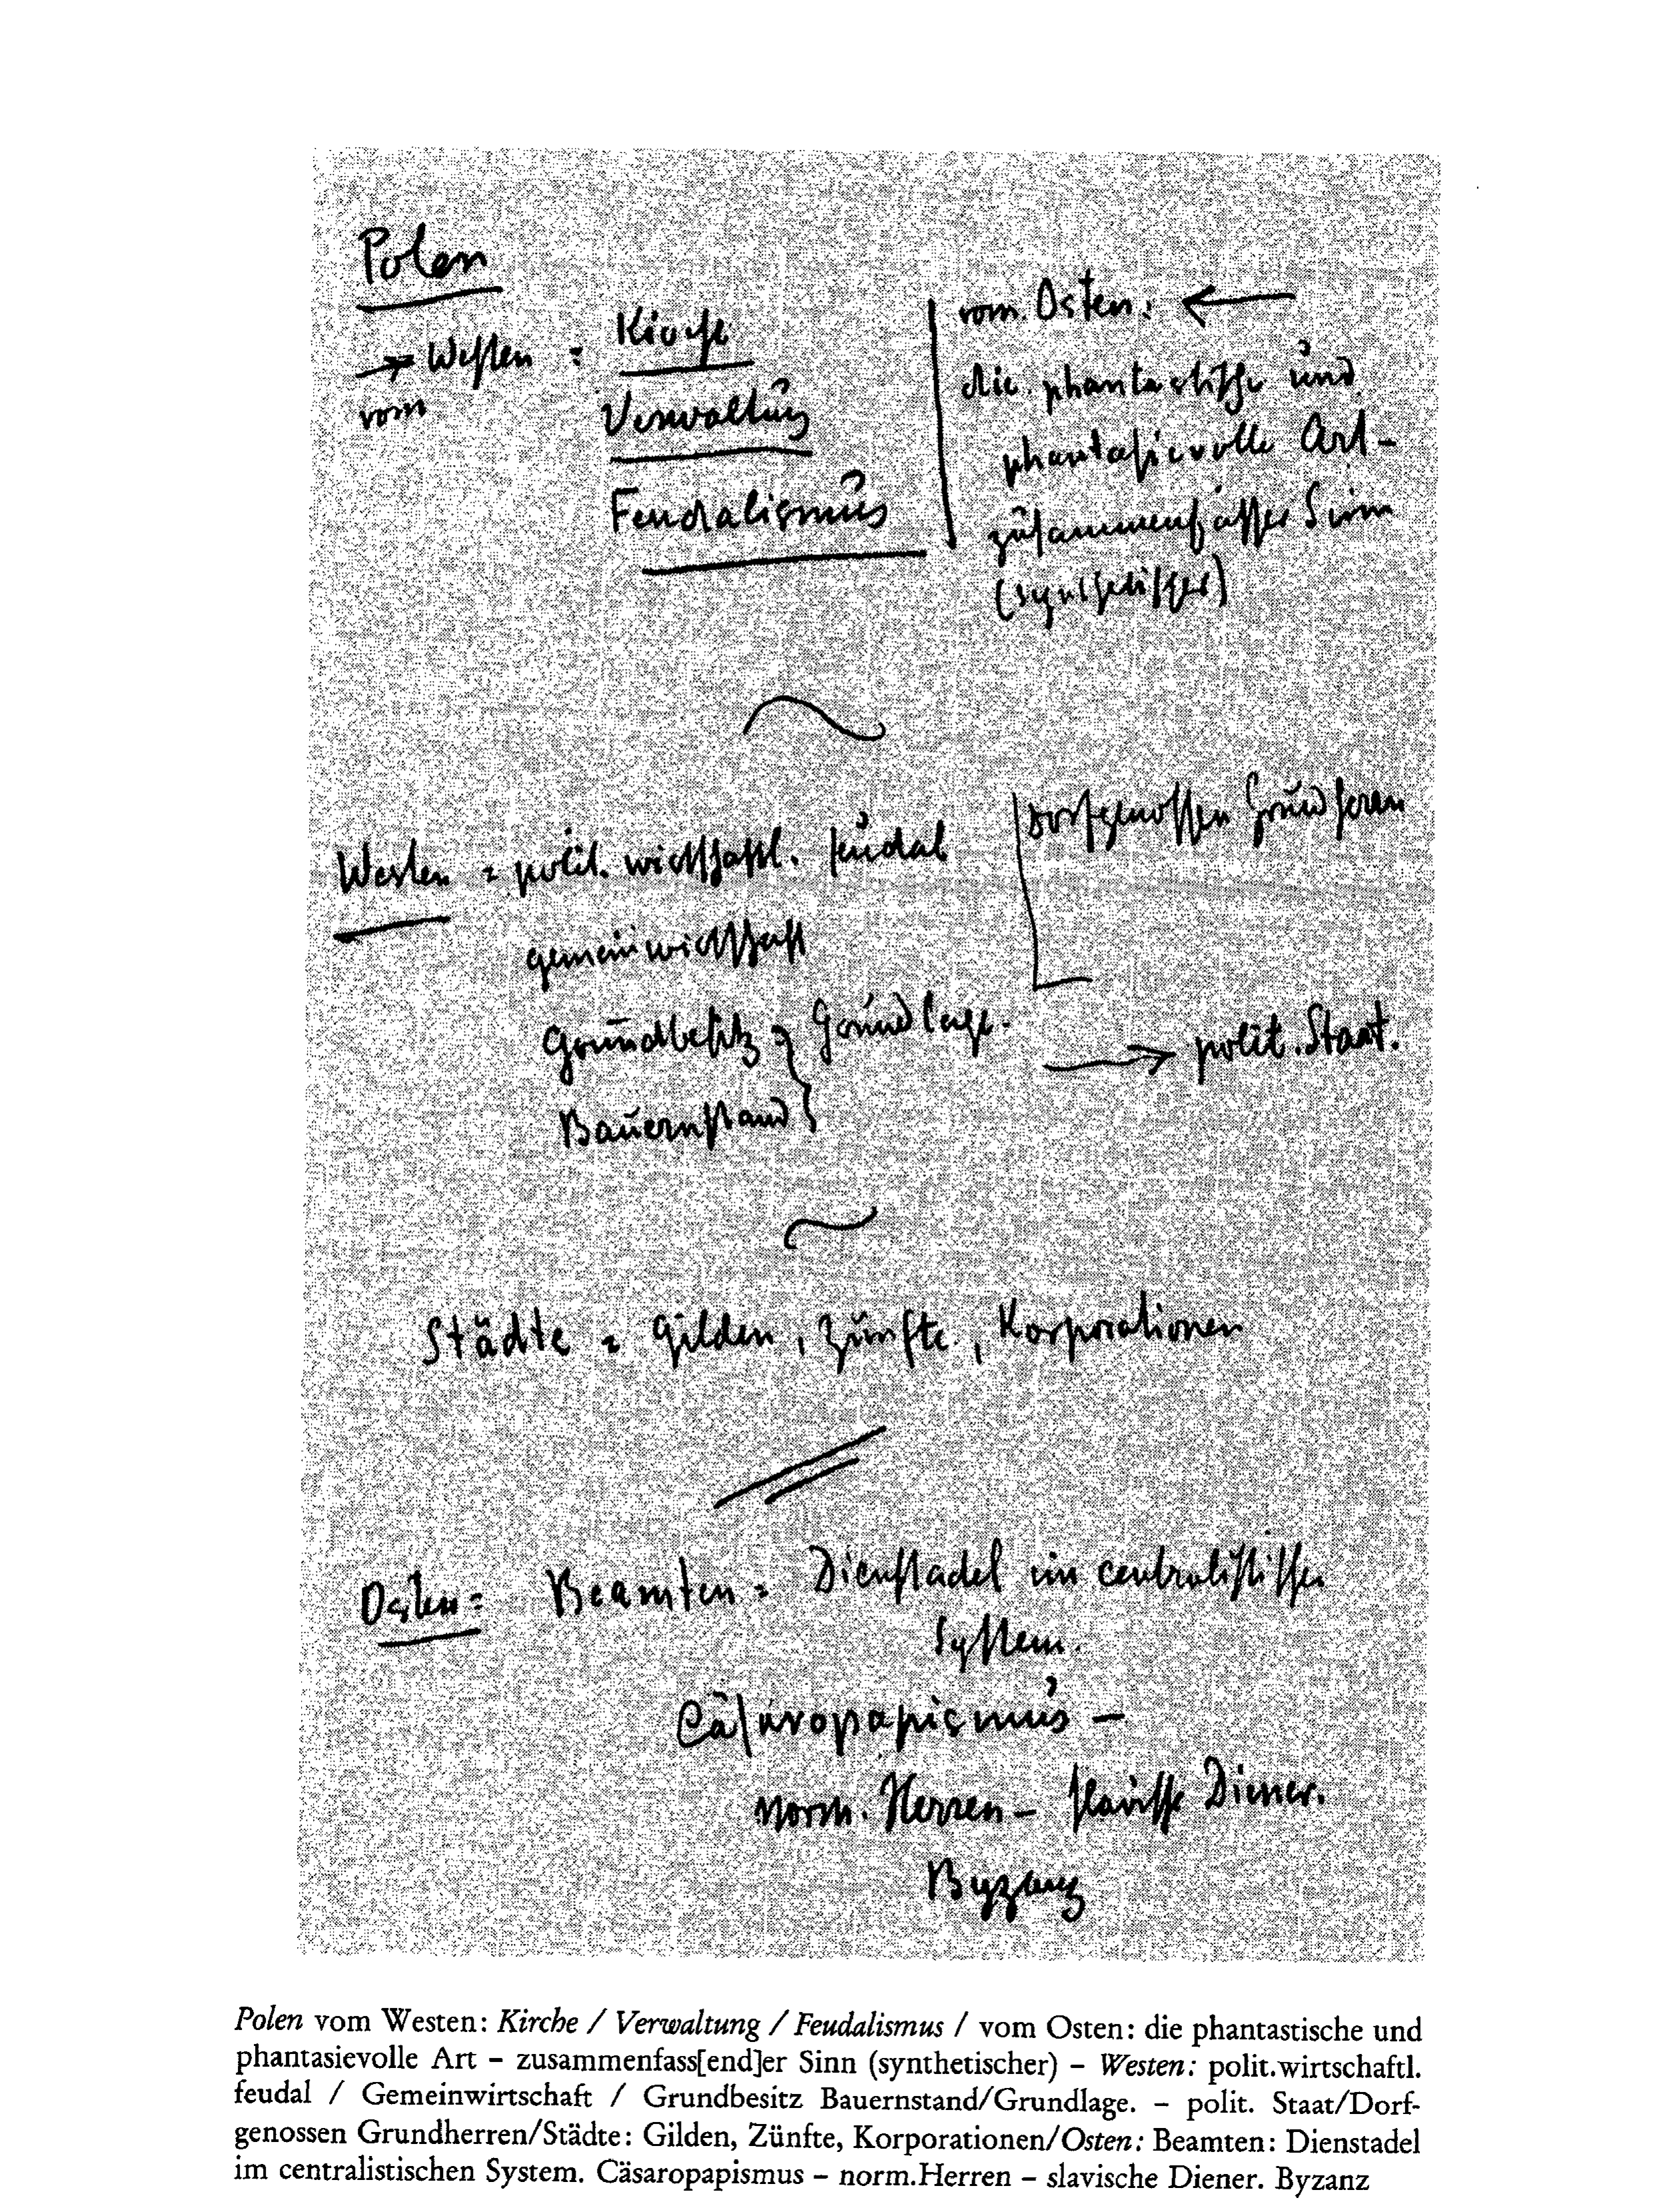 Polen
→ Westen :
vom
Kirche
Verwaltung
Feudalismus
vom Osten: ←
die phantastische und
phantasievolle Art –
zusammenfasser Sinn
(synthetischer)
Westen = polit. wirtschaftl. feudal
gemeinwirtschaft
Grundbesitz } Grundlage.
Bauernstand
Dorfgenossen Grundheren
→ polit. Staat.
Städte = Gilden, Zünfte, Korporationen
Osten = Beamten = Dienstadel im centralistischen
System.
Cäsaropapismus –
norm. Herren – slavische Diener.
Byzanz
Polen vom Westen: Kirche / Verwaltung / Feudalismus / vom Osten: die phantastische und
phantasievolle Art – zusammenfass[end]er Sinn (synthetischer) – Westen: polit.wirtschaftl.
feudal / Gemeinwirtschaft / Grundbesitz Bauernstand/Grundlage. – polit. Staat/Dorf-
genossen Grundherren/Städte: Gilden, Zünfte, Korporationen/Osten: Beamten: Dienstadel
im centralistischen System. Cäsaropapismus – norm.Herren – slavische Diener. Byzanz